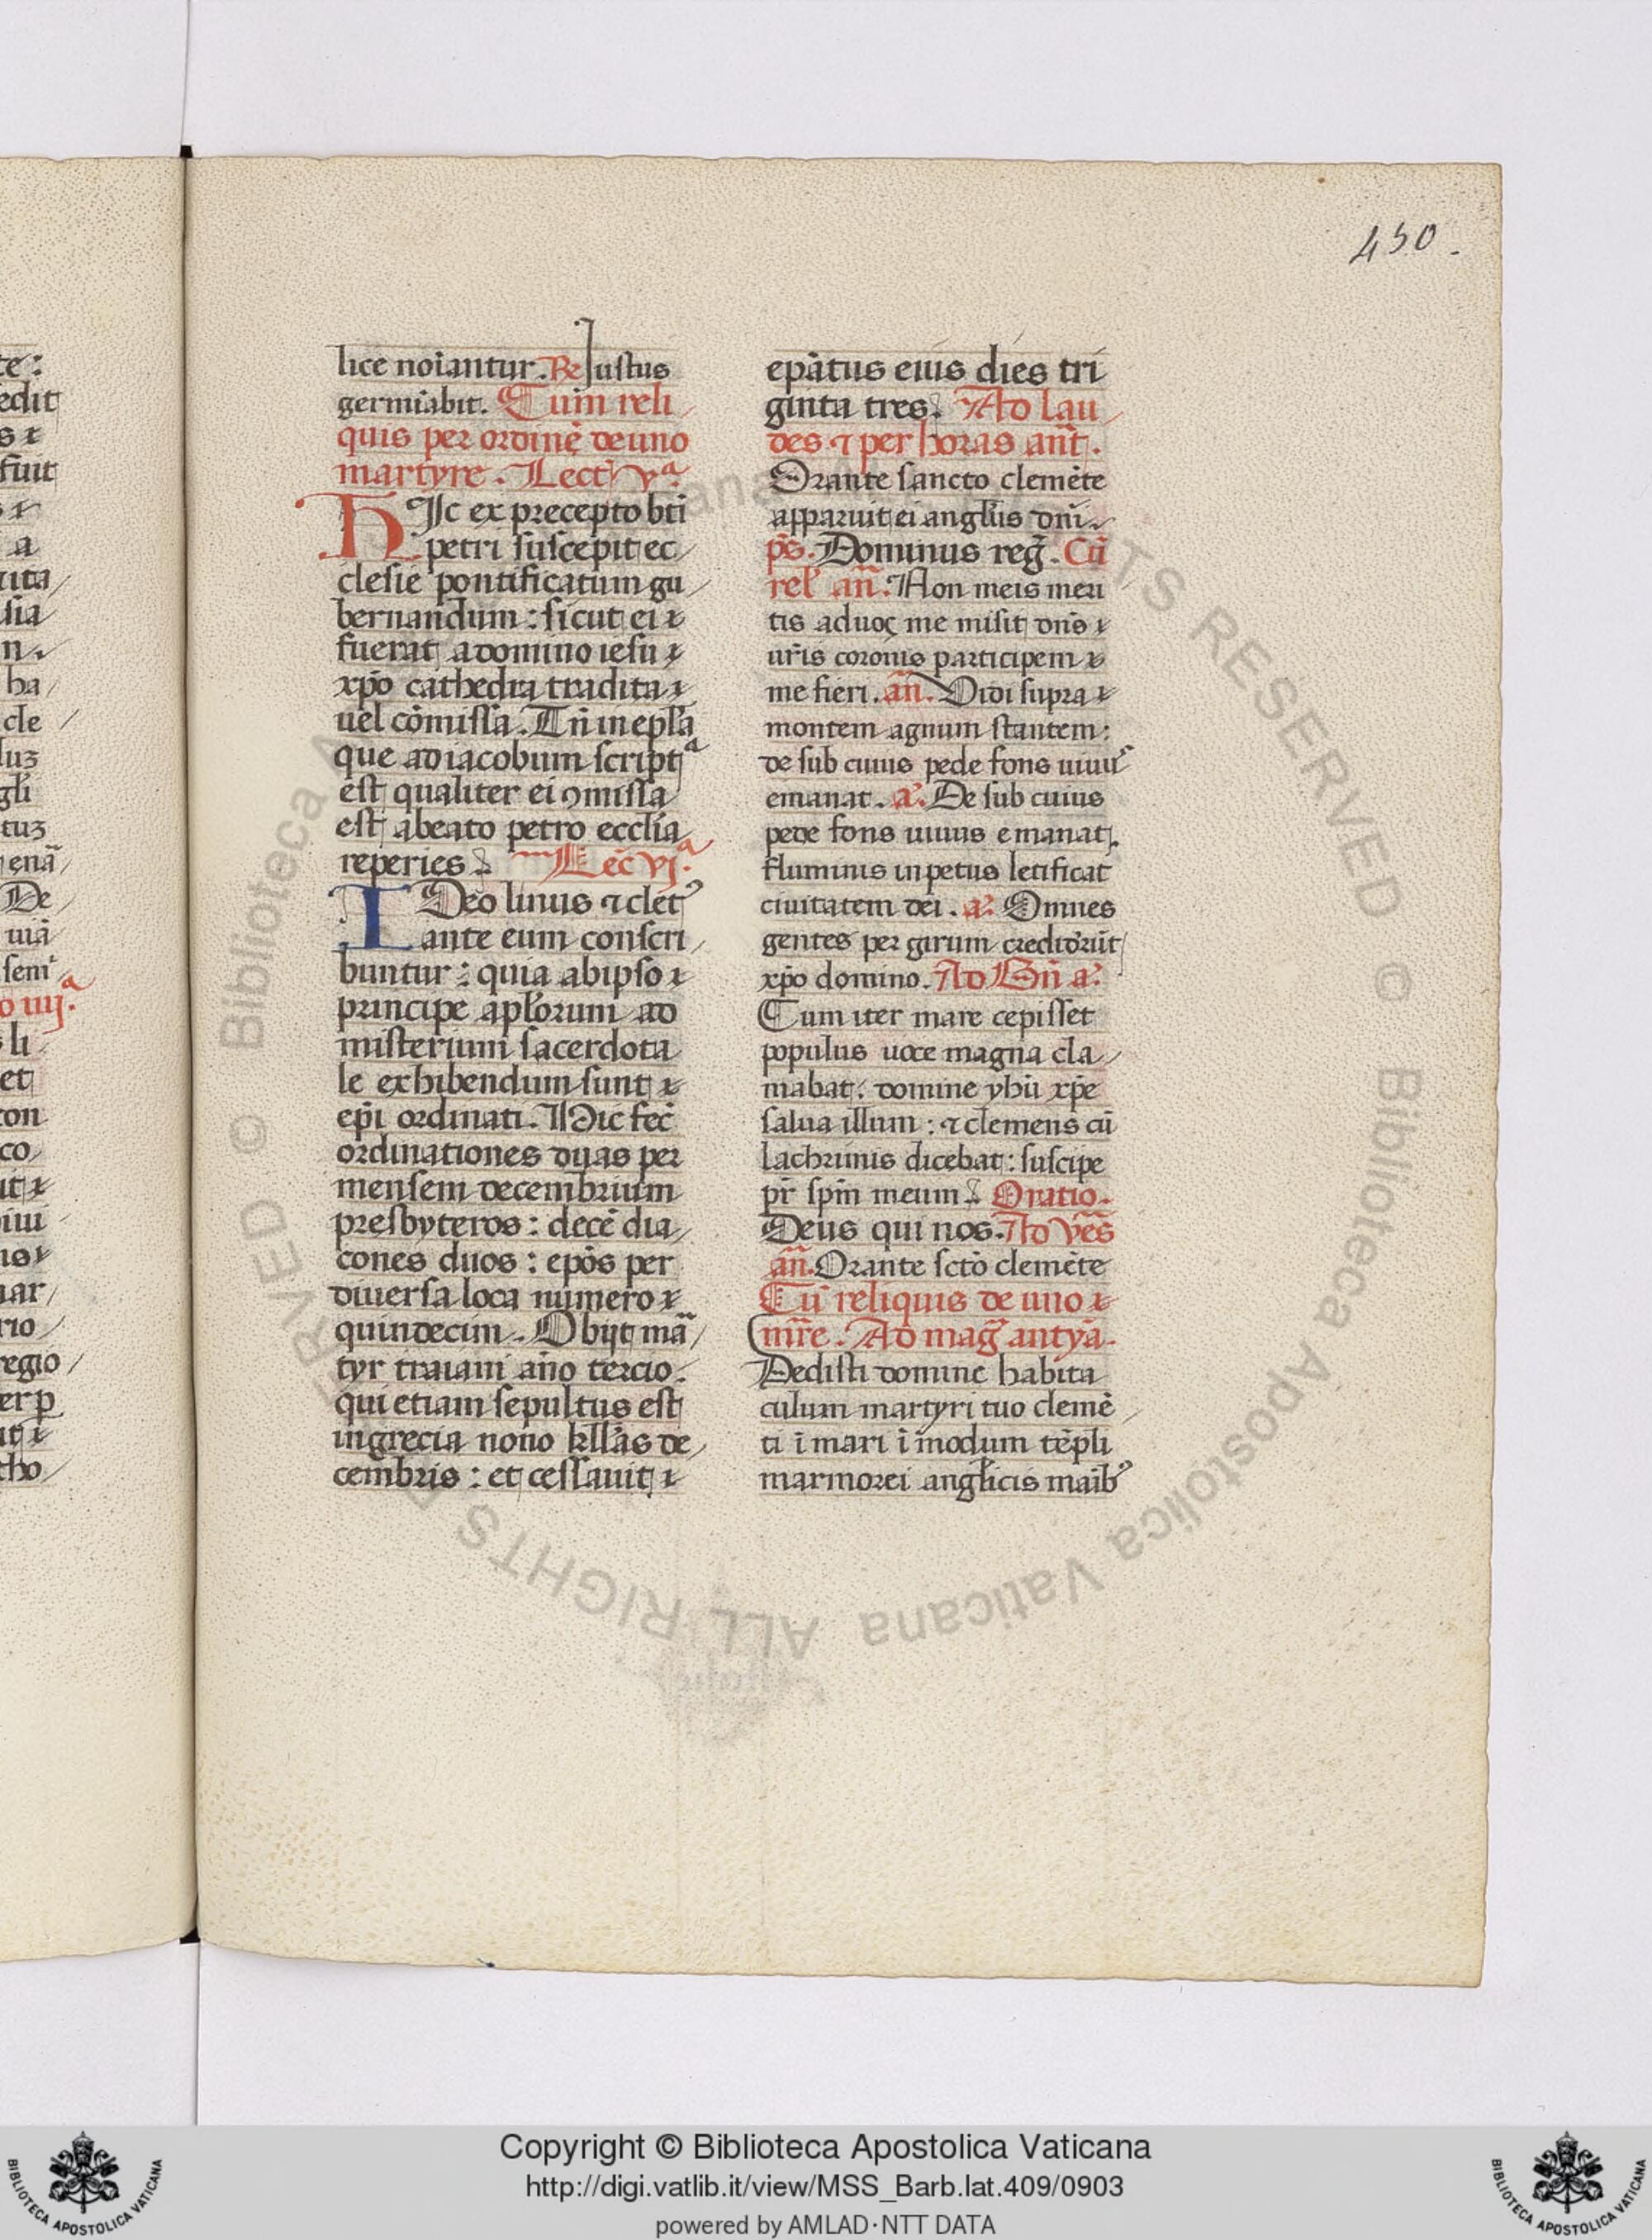 450.
lice noiãntur. Re Justus
germiãbit. Cum reli
quis per ordinẽ de uno
martyre. Lect. vª.
Hic ex precepto bti
petri suscepit ec
clesie pontificatum gu
bernandum: sicut ei
fuerat a domino iesu
xpo cathedra tradita
uel cõmissa. Un in epla
que ad iacobum scriptª
est qualiter ei ꝯmissa
est abeato petro ecclia
reperies Lec vj.ª
Ideo linus ⁊ cletꝰ
ante eum conscri
buntur: quia ab ipso
principe aplorum ad
misterium sacerdota
le exhibendum sunt
epi ordinati. Hic fec
ordinationes duas per
mensem decembrium
presbyteros: decẽ dia
cones duos: epos per
diuersa loca numero
quindecim. Obijt mã
tyr traiani año tercio.
qui etiam sepultus est
in grecia nono kllas de
cembris: et cessauit
epãtus eius dies tri
ginta tres. Ad lau
des ⁊ per horas añt.
Orante sancto clemẽte
apparuit ei anglus dni
ps. Dominus reg. Cũ
rel añ. Non meis meri
tis ad uoç me misit dñs
uris coronis participem
me fieri. añ. Vidi supra
montem agnum stantem:
de sub cuius pede fons uiuuˢ
emanat. a. De sub cuius
pede fons uiuus emanat.
fluminis inpetus letificat
ciuitatem dei. a. Omnes
gentes per girum crediderũt
xpo domino. Ad Bñ a.
Cum iter mare cepisset
populus uoce magna cla
mabat: domine yhũ xpe
salua illum: ⁊ clemens cũ
lachrimis dicebat: suscipe
pr spm meum Oratio.
Deus qui nos. Ad ves
añ. Orante scto clemẽte
Cũ reliquis de uno
mre. Ad mag antya.
Dedisti domine habita
culum martyri tuo clemẽ
ti ĩ mari ĩ modum tẽpli
marmorei anglicis maibꝰ
te:
edit
fuit
a
ha
cle
De
uiã
o iiij.ª
li
et
con
co
regio
tho
Copyright © Biblioteca Apostolica Vaticana
http://digi.vatlib.it/view/MSS_Barb.lat.409/0903
powered by AMLAD·NTT DATA
BIBLIOTECA APOSTOLICA VATICANA
BIBLIOTECA APOSTOLICA VATICANA
© Biblioteca Apostolica Vaticana ALL RIGHTS RESERVED